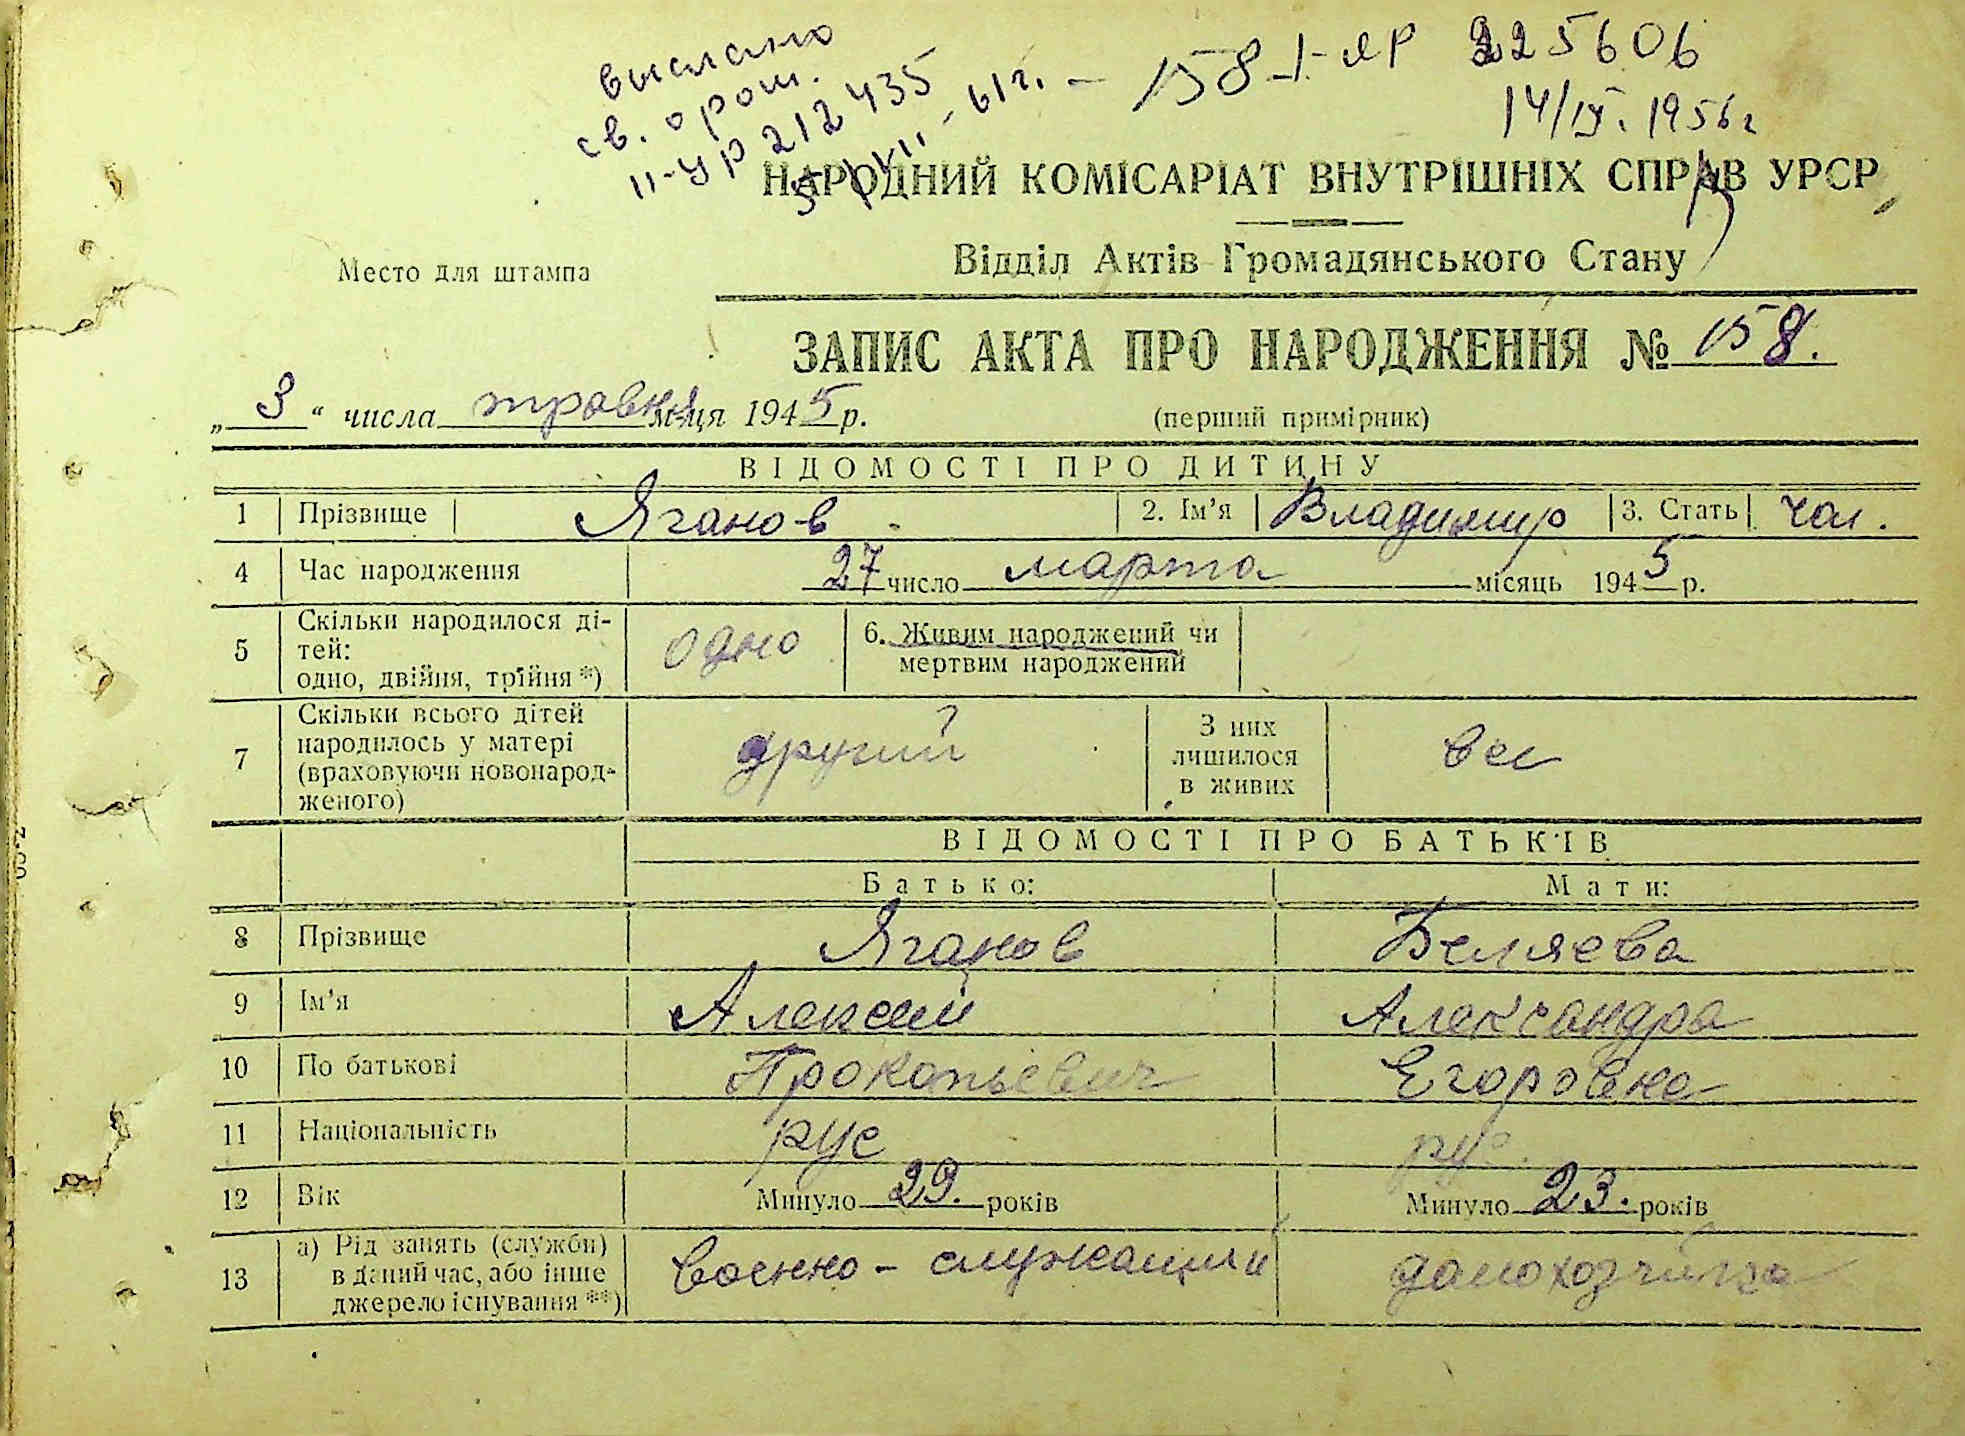 выслано
св. о рож.
II-УР 212435
5/VII-61г. - 158 I-ЯР 225606
14/IX. 1956 г
НАРОДНИЙ КОМІСАРІАТ ВНУТРІШНІХ СПРАВ УРСР
Место для штампа
Відділ Актів Громадянського Стану
ЗАПИС АКТА ПРО НАРОДЖЕННЯ № 158.
„ 3 “ числа травня м-ця 1945 р.
(перший примірник)
ВІДОМОСТІ ПРО ДИТИНУ
1 Прізвище Яганов 2. Ім’я Владимир 3. Стать чол.
4 Час народження 27 число марта місяць 1945 р.
5 Скільки народилося ді-
тей:
одно, двійня, трійня *) одно 6. Живим народжений чи
мертвим народжений
7 Скільки всього дітей
народилось у матері
(враховуючи новонарод-
женого) другий З них
лишилося
в живих все
ВІДОМОСТІ ПРО БАТЬКІВ
Батько: Мати:
8 Прізвище Яганов Беляева
9 Ім’я Алексей Александра
10 По батькові Прокопьевич Егоровна
11 Національність рус рус.
12 Вік Минуло 29. років Минуло 23. років
13 а) Рід занять (служби)
в даний час, або інше
джерело існування **) военно-служащий